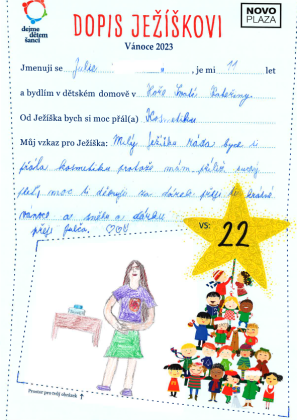 dejme
dětem
šanci
DOPIS JEŽÍŠKOVI
NOVO
PLAZA
Vánoce 2023
Jmenuji se Julie , je mi 11 let
a bydlím v dětském domově v Hoře Svaté Kateřiny
Od Ježíška bych si moc přál(a) Kosmetiku
Můj vzkaz pro Ježíška: Milý Ježíšku ráda bych si
přála kosmetiku protože mám příliš suchý
pleť, moc ti děkuji za dárek přeji krásné
vánoce a sněhu a dárků
přeji
VS: 22
Prostor pro tvůj obrázek ↑